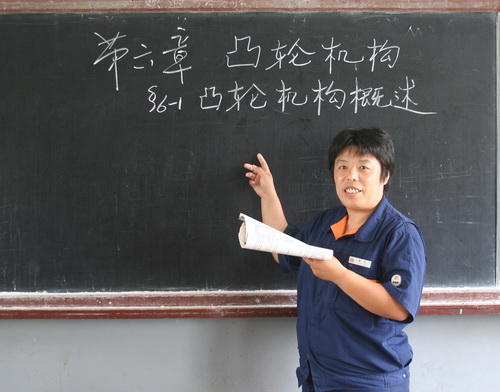 第六章 凸轮机构
§6-1 凸轮机构概述